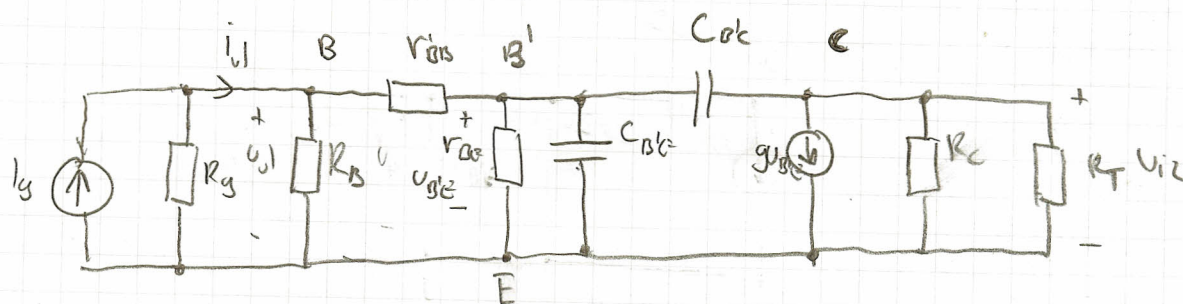 i_ul B r_B'B B' C_B'C C
+ + +
I_g R_g u_ul R_B r_B'E u_B'E C_B'E gu_B'E R_C R_T U_iz
- - -
E